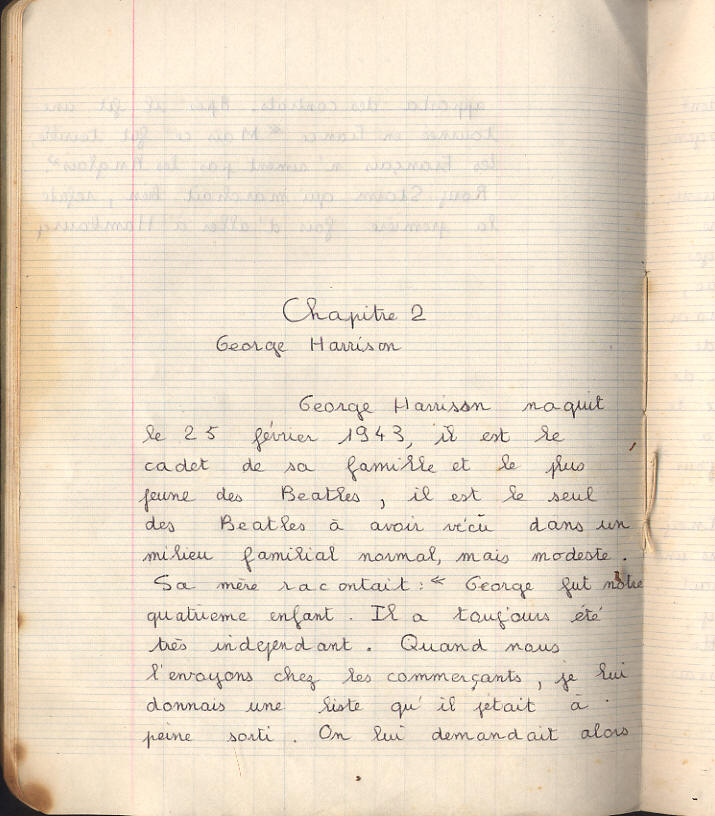 Chapitre 2
George Harrison
George Harrison naquit
le 25 février 1943, il est le
cadet de sa famille et le plus
jeune des Beatles, il est le seul
des Beatles à avoir vécu dans un
milieu familial normal, mais modeste.
Sa mère racontait : « George fut notre
quatrieme enfant. Il a toujours été
très independant. Quand nous
l'envoyons chez les commerçants, je lui
donnais une liste qu'il jetait à
peine sorti. On lui demandait alors